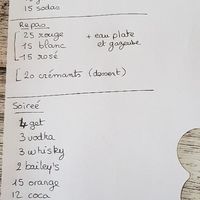 15 sodas
Repas
25 rouge + eau plate
15 blanc et gazeuse
15 rosé
20 crémants (dessert)
Soireé
4 get
3 vodka
3 whisky
2 bailey's
15 orange
12 coca